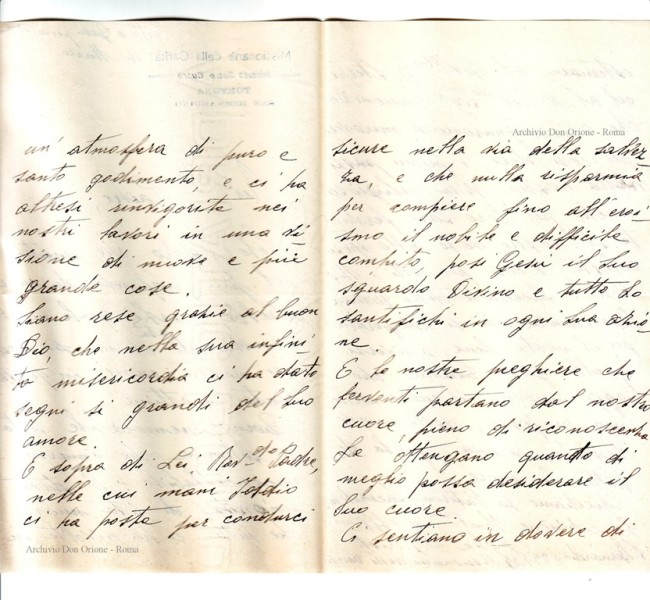 un' atmosfera di puro e
santo godimento, e ci ha
altresì rinvigorite nei
nostri lavori in una vi
sione di nuove e più
grande cose.
Siano rese grazie al buon
Dio, che nella sua infini_
ta misericordia ci ha dato
segni sì grandi del Suo
amore.
E sopra di Lei, Rev.do Padre,
nelle cui mani Iddio
ci ha poste per condurci
Archivio Don Orione - Roma
Archivio Don Orione - Roma
sicure nella via della salvez
za, e che nulla risparmia
per compiere fino all'eroi_
smo il nobile e difficile
compito, posi Gesù il Suo
sguardo Divino e tutto Lo
santifichi in ogni Sua azio_
ne.
E le nostre preghiere che
ferventi partano dal nostro
cuore, pieno di riconoscenza
Le ottengano quanto di
meglio possa desiderare il
Suo cuore.
Ci sentiamo in dovere di